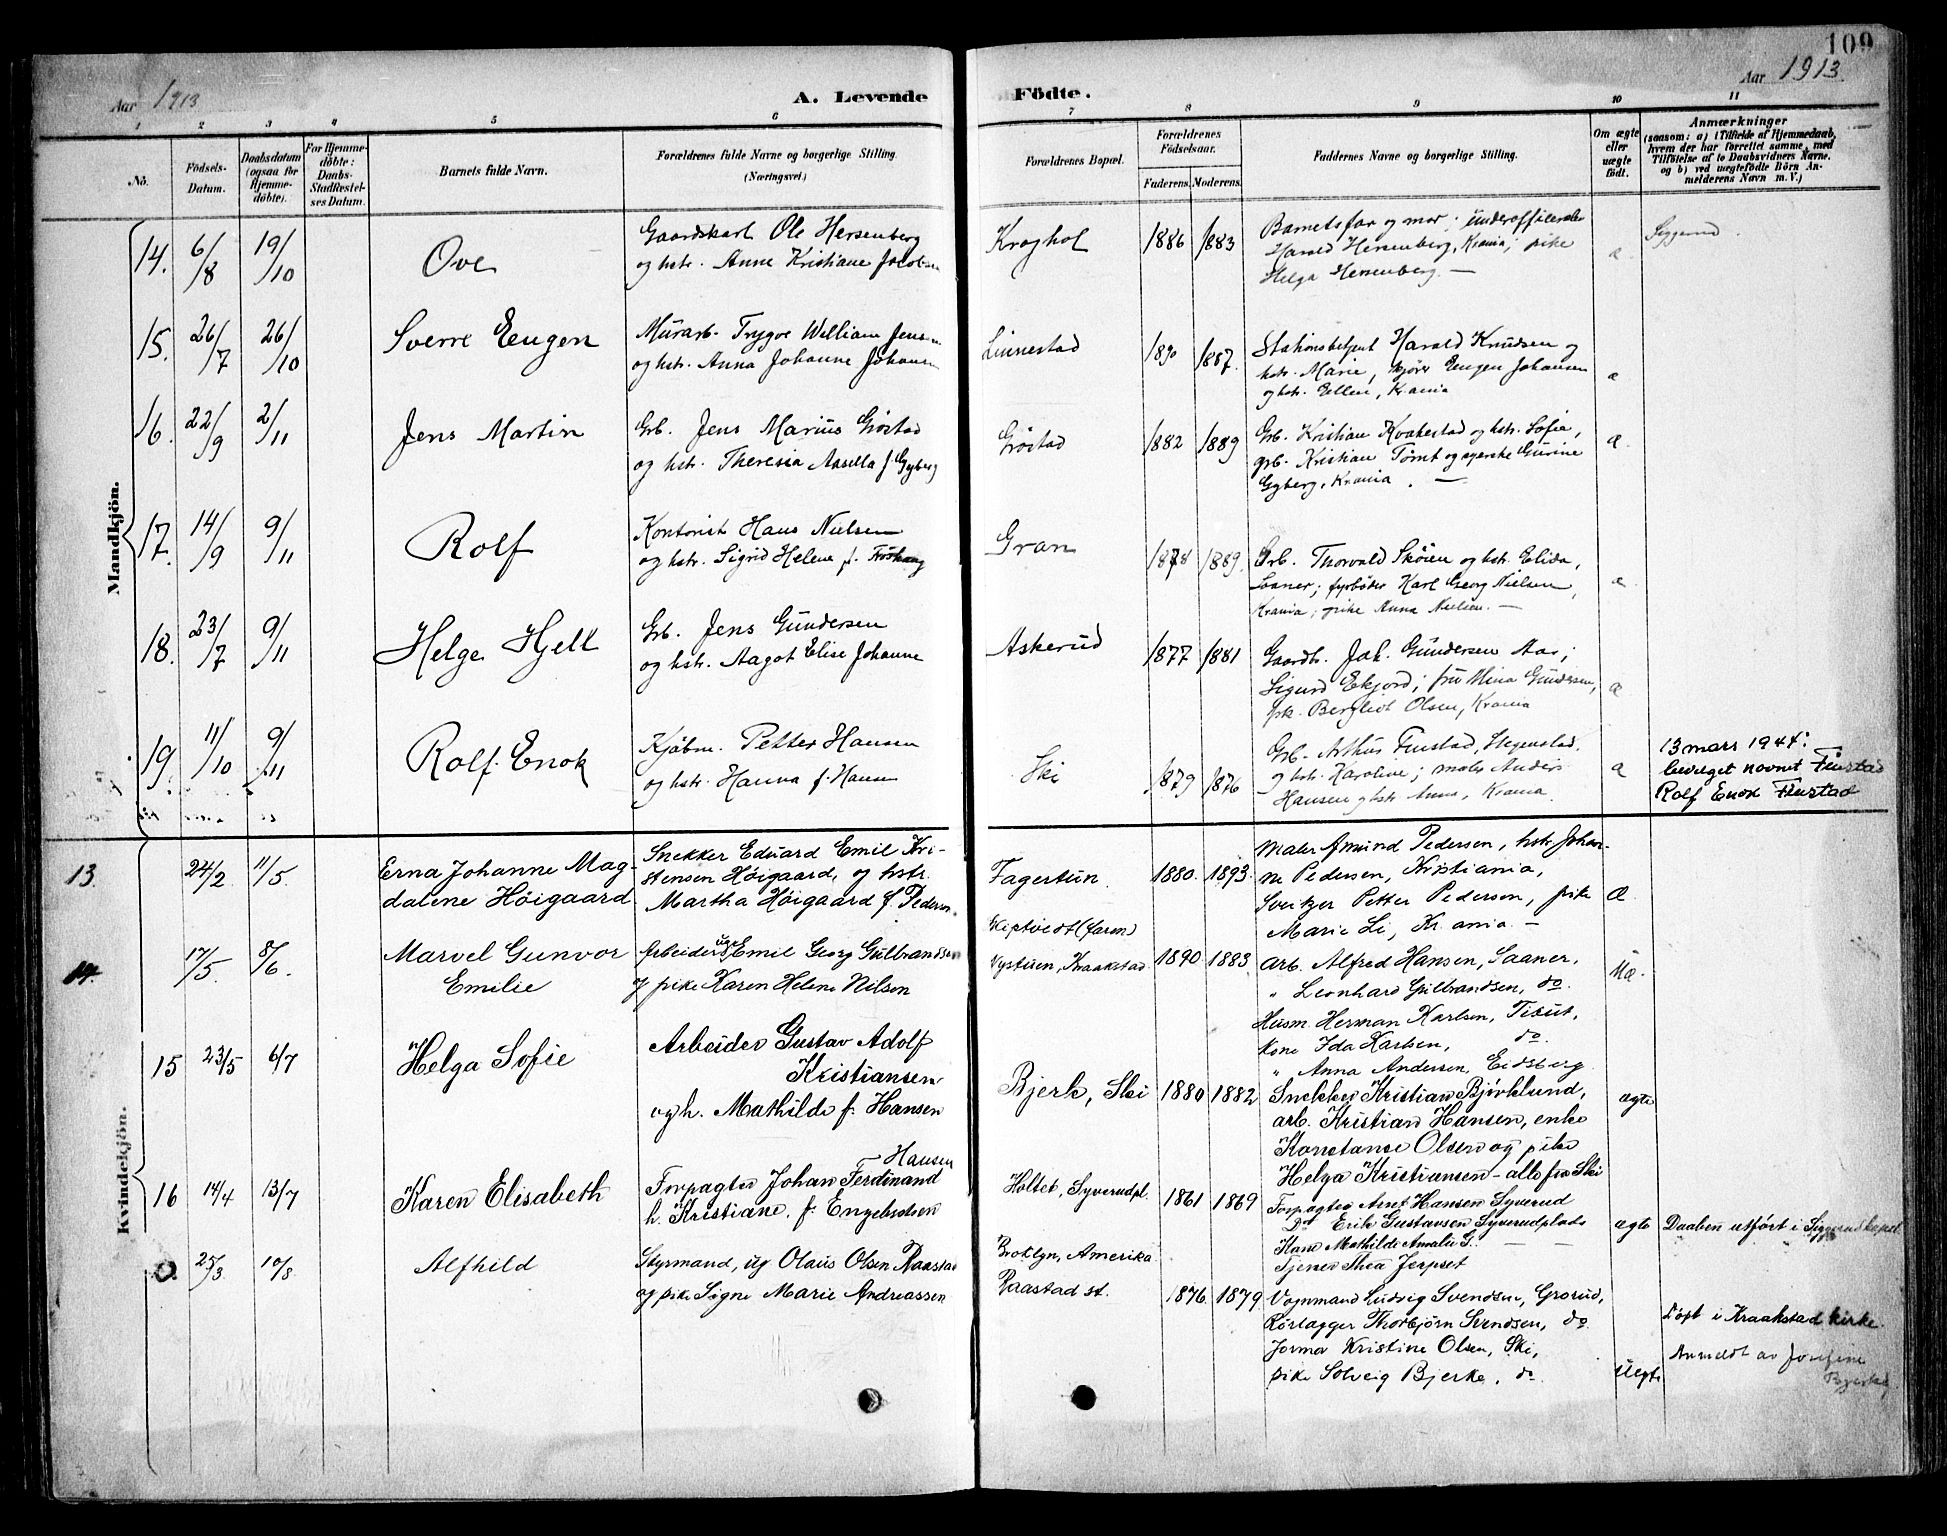 109
Aar 1913
A. Levende
Födte.
Aar 1913.
1 2 3 4 5 6 7 8 9 10 11
No.
Födsels-
Datum.
Daabsdatum
(ogsaa for
Hjemme-
döbte).
For Hjemme-
döbte:
Daabs-
Stadfæstel-
ses Datum.
Barnets fulde Navn.
Forældrenes fulde Navne og borgerlige Stilling.
(Næringsvei)
Forældrenes Bopæl.
Forældrenes
Födselsaar.
Faderens. Moderens.
Faddernes Navne og borgerlige Stilling.
Om ægte
eller
uægte
født.
Anmærkninger
(saasom: a) i Tilfælde af Hjemmedaab,
hvem der har forrettet samme, med
Tilföielse af to Daabsvidners Navne.
og b) ved uægtefödte Börn An-
melderens Navn m. V.)
Mandkjön.
14. 6/8 19/10
Ove
Gaardskarl Ole Hersenberg
og hstr. Anne Kristiane Jacobsen
Kroghol
1886 1883
Barnets far og mor; underofficer
Harald Hersenberg, Krania; pike
Helga Hersenberg. —
æ
Siggerud.
15. 26/7 26/10
Sverre Eugen
Murarb. Trygve William Jensen
og hstr. Anna Johanne Johansen
Linnestad
1890 1887.
Stationsbetjent Harald Knudsen og
hstr. Marie, kjører Eugen Johansen
og hstr. Ellen, Krania
æ
16. 22/9 2/11
Jens Martin
Grb. Jens Marius Grøstad
og hstr. Theresia Aasella f. Gyberg
Grøstad
1882 1889
Grb. Kristian Kvakestad og hstr. Sofie,
grb. Kristian Tømt og syerske Gurine
Gyberg, Krania. —
æ.
17. 14/9 9/11
Rolf
Kontorist Hans Nielsen
og hstr. Sigrid Helene f. Froshaug
Gran
1878 1889.
Grb. Thorvald Skøien og hstr. Elida,
Saaner; fyrbøder Karl Georg Nielsen,
Krania; pike Anna Nielsen. —
æ.
18. 23/7 9/11
Helge Hjell
Grb. Jens Gundersen
og hstr. Aagot Elise Johanne
Askerud
1877 1881
Gaardb. Joh. Gundersen Aas;
Sigurd Ekjord; fru Mina Gundersen,
pk. Bergliot Olsen, Krania
æ
19. 11/10 9/11
Rolf Enok
Kjøbm. Petter Hansen
og hstr. Hanna f. Hansen
Ski
1879 1876
Grb. Arthur Finstad, Stegenstad.
og hstr. Karoline; maler Anders
Hansen og hstr Anna, Krania.
æ
13 mars 1944:
bevilget navnet Finstad
Rolf Enok Finstad
Kvindekjön.
13. 24/2 11/5.
Erna Johanne Mag-
dalene Høigaard
Snekker Edvard Emil Kri-
stensen Høigaard, og hstr.
Martha Høigaard f. Pedersen.
Fagertun.
1880. 1893.
Maler Amund Pedersen, hstr Johan-
ne Pedersen, Kristiania,
Sveitzer Petter Pedersen, pike
Marie Li, Kr.ania. —
Æ
14. 17/5. 8/6.
Marvel Gunvor
Emilie
Arbeider ugf Emil Georg Gulbrandsen
og pike Karen Helene Nilsen
Keptvedt (faren)
Nystuen, Kraakstad
1890 1883
Arb. Alfred Hansen, Saaner,
" Leonhard Gulbrandsen, do.
Husm. Herman Karlsen, Tibut,
Kone Ida Karlsen, do.
" Anna Andersen, Eidsberg
Uæ.
15 23/5 6/7
Helga Sofie
Arbeider Gustav Adolf
Kristiansen
og h. Mathilde f. Hansen
Bjerk, Ski
1880 1882
Snekker Kristian Bjørklund,
arb. Kristian Hansen, enke
Konstanse Olsen og pike
Helga Kristiansen - alle fra Ski
ægte
16 14/4 13/7
Karen Elisabeth
Hansen
Forpagter Johan Ferdinand
h. Kristiane. f. Engebretsen
Holtet, Syverudpl.
1861 1869
Forpagter Arnt Hansen Syverud
Do Erik Gustavsen Syverudplads
Kone Mathilde Amalie G. —
Tjener Thea Jerpset
ægte
Daaben utført i Siggerud kapel.
25/3 10/8
Alfhild
Styrmand, ug. Olaus Olsen Raastad
og pike Signe Marie Andreassen
Broklyn, Amerika
Raastad st.
1876. 1879
Vognmand Ludvig Svendsen, Grorud,
Rørlægger Thorbjørn Svendsen, do.
Jormor Kristine Olsen, Ski,
pike Solveig Bjerke, do.
Uegte
Døpt i Kraakstad kirke.
Anmeldt av Josefine
Bjerke